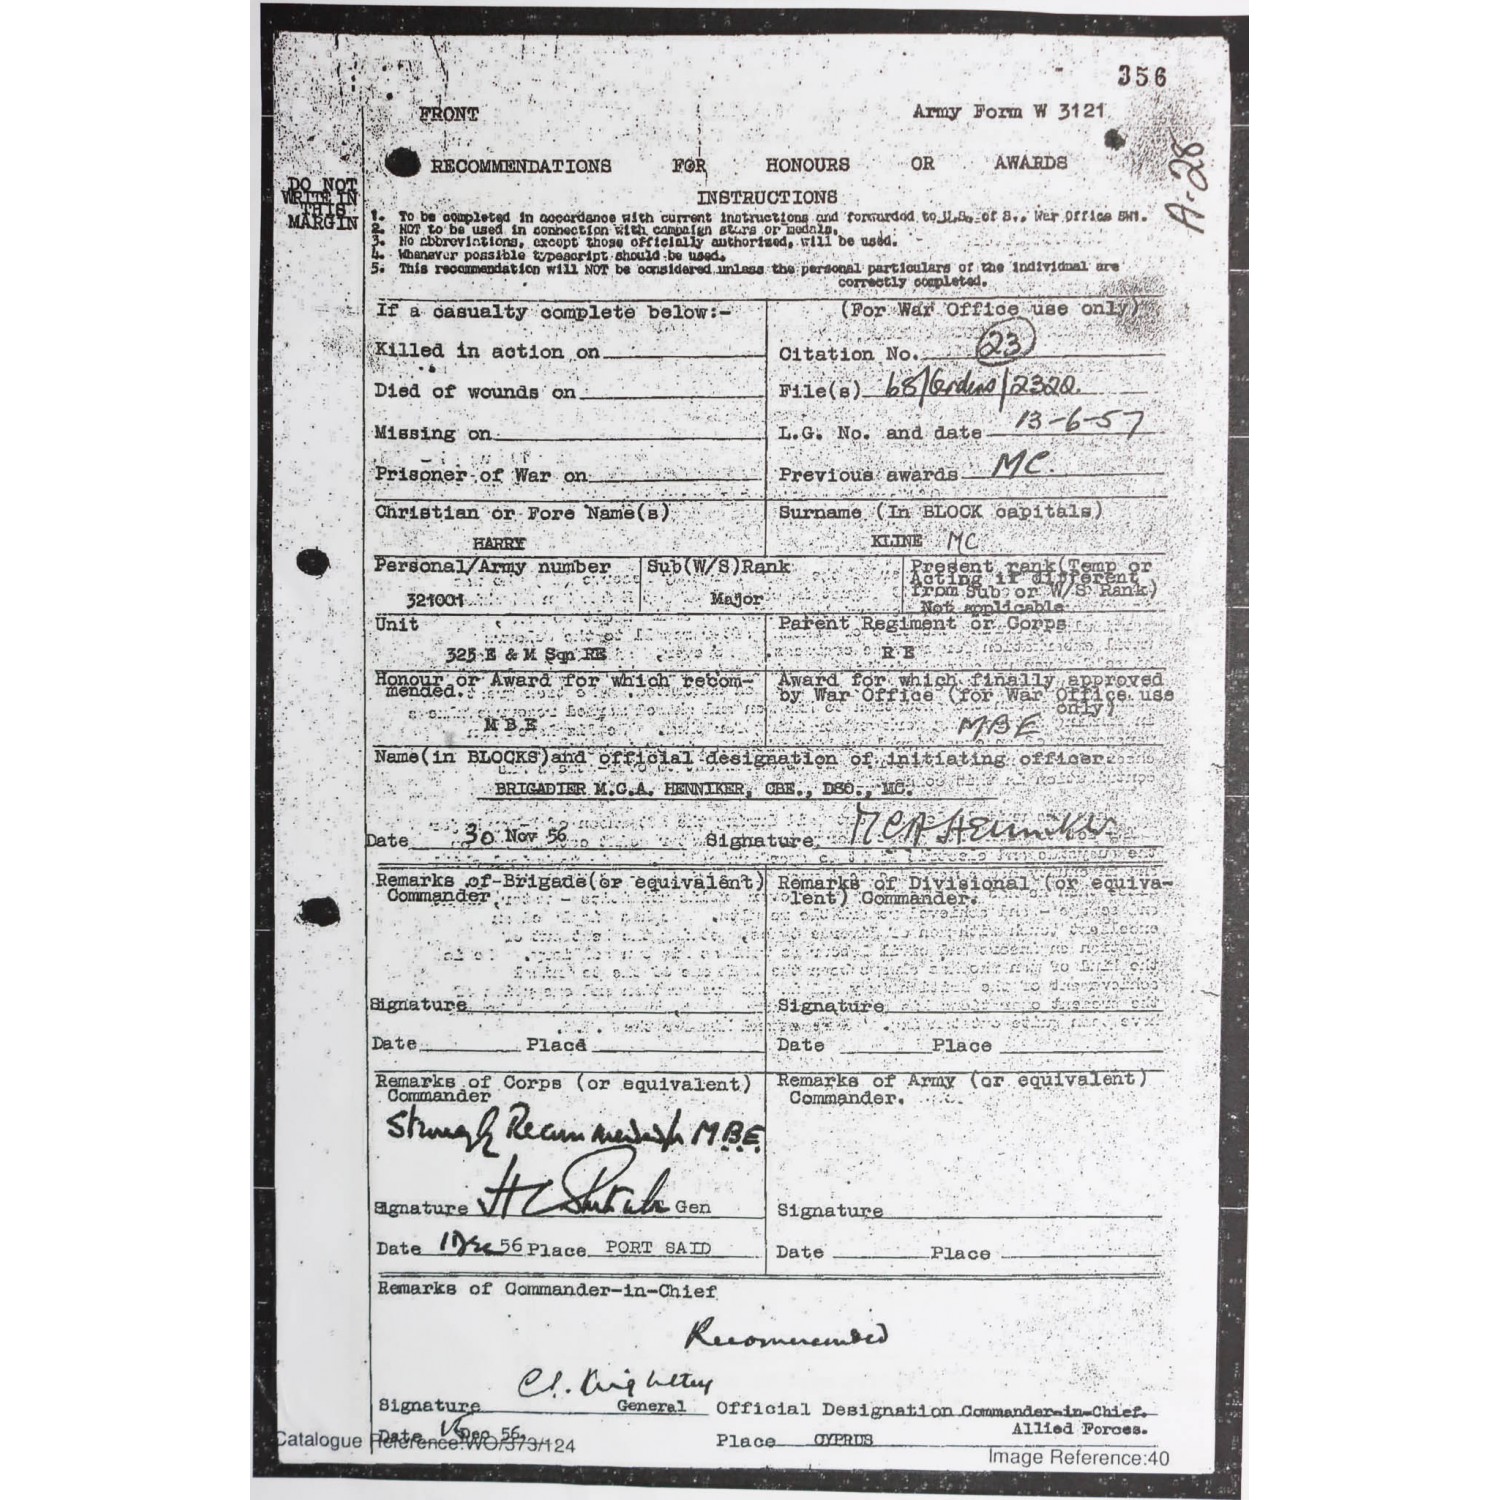 356
FRONT Army Form W 3121
A-28
RECOMMENDATIONS FOR HONOURS OR AWARDS
DO NOT
WRITE IN
THIS
MARGIN
INSTRUCTIONS
1. To be completed in accordance with current instructions and forwarded to U.S. of S., War Office SW1.
2. NOT to be used in connection with campaign stars or medals.
3. No abbreviations, except those officially authorized, will be used.
4. Whenever possible typescript should be used.
5. This recommendation will NOT be considered unless the personal particulars of the individual are
correctly completed.
If a casualty complete below:- (For War Office use only)
Killed in action on Citation No. 23
Died of wounds on File(s) 68/Orders/2322
Missing on L.G. No. and date 13-6-57
Prisoner of War on Previous awards MC.
Christian or Fore Name(s) Surname (In BLOCK capitals)
HARRY KLINE MC
Personal/Army number Sub(W/S)Rank Present rank(Temp or
Acting if different
from Sub or W/S Rank)
321001 Major Not applicable
Unit Parent Regiment or Corps
325 E & M Sqn RE R E
Honour or Award for which recom-
mended.
Award for which finally approved
by War Office (for War Office use
only)
M B E MBE
Name(in BLOCKS)and official designation of initiating officer
BRIGADIER M.C.A. HENNIKER, CBE., DSO., MC.
Date 30 Nov 56 Signature MCA Henniker
Remarks of Brigade(or equivalent)
Commander
Remarks of Divisional (or equiva-
lent) Commander.
Signature Signature
Date Place Date Place
Remarks of Corps (or equivalent)
Commander
Remarks of Army (or equivalent)
Commander.
Strongly Recommended for MBE
Signature Gen Signature
Date 1 Dec 56 Place PORT SAID Date Place
Remarks of Commander-in-Chief
Recommended
C.F. Keightley
Signature General Official Designation Commander-in-Chief.
Allied Forces.
Date Dec 56. Place CYPRUS
Catalogue Reference:WO/373/124 Image Reference:40